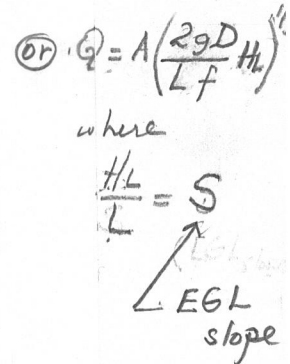 or Q = A (2gD / Lf HL)
where
HL / L = S
EGL
slope